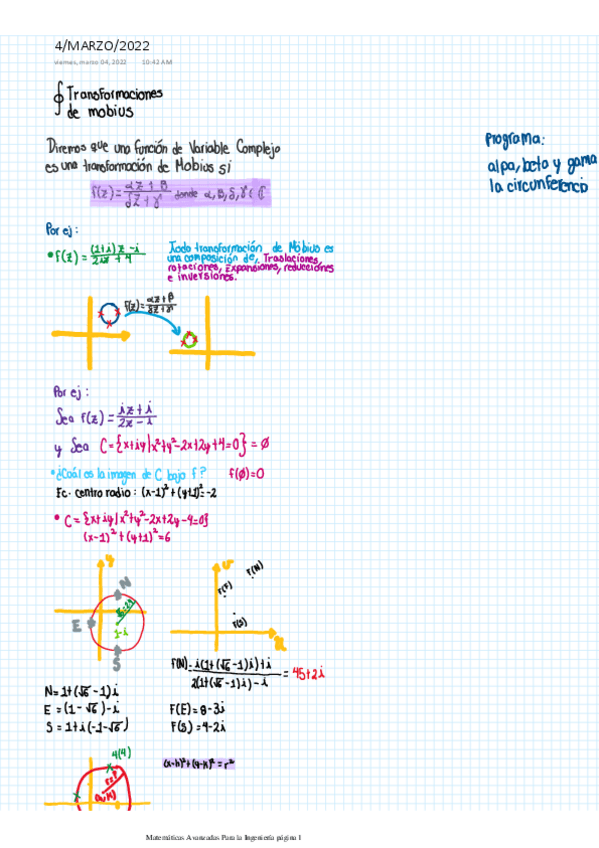 4/MARZO/2022
viernes, marzo 04, 2022 10:42 AM
∮ Transformaciones
de mobius
Diremos que una función de Variable Compleja
es una transformación de Mobius si
f(z) = αz + β / δz + γ donde α, β, δ, γ ∈ ℂ
Programa:
alpa, beta y gama
la circunferencia
Por ej:
• f(z) = (1+i)z - i / 2iz + 4
Toda transformación de Möbius es
una composición de, Traslaciones,
rotaciones, Expansiones, reducciones
e inversiones.
f(z) = αz + β / δz + γ
Por ej:
Sea f(z) = iz + i / 2z - i
y Sea C = {x+iy | x²+y²-2x+2y+4=0} = ∅
• ¿Cuál es la imagen de C bajo f? f(∅)=0
Ec. centro radio: (x-1)² + (y+1)² = -2
• C = {x+iy | x²+y²-2x+2y-4=0}
(x-1)² + (y+1)² = 6
y
N
E
1-i
S
f(N)
f(E)
f(S)
f(N) = i(1+(√6-1)i)+i / 2(1+(√6-1)i)-i = 45+2i
N = 1+(√6-1)i
E = (1-√6)-i
S = 1+i(-1-√6)
F(E) = 8-3i
F(S) = 4-2i
4(4)
(x-h)²+(y-k)² = r²
(h,k)
Matemáticas Avanzadas Para la Ingeniería página 1